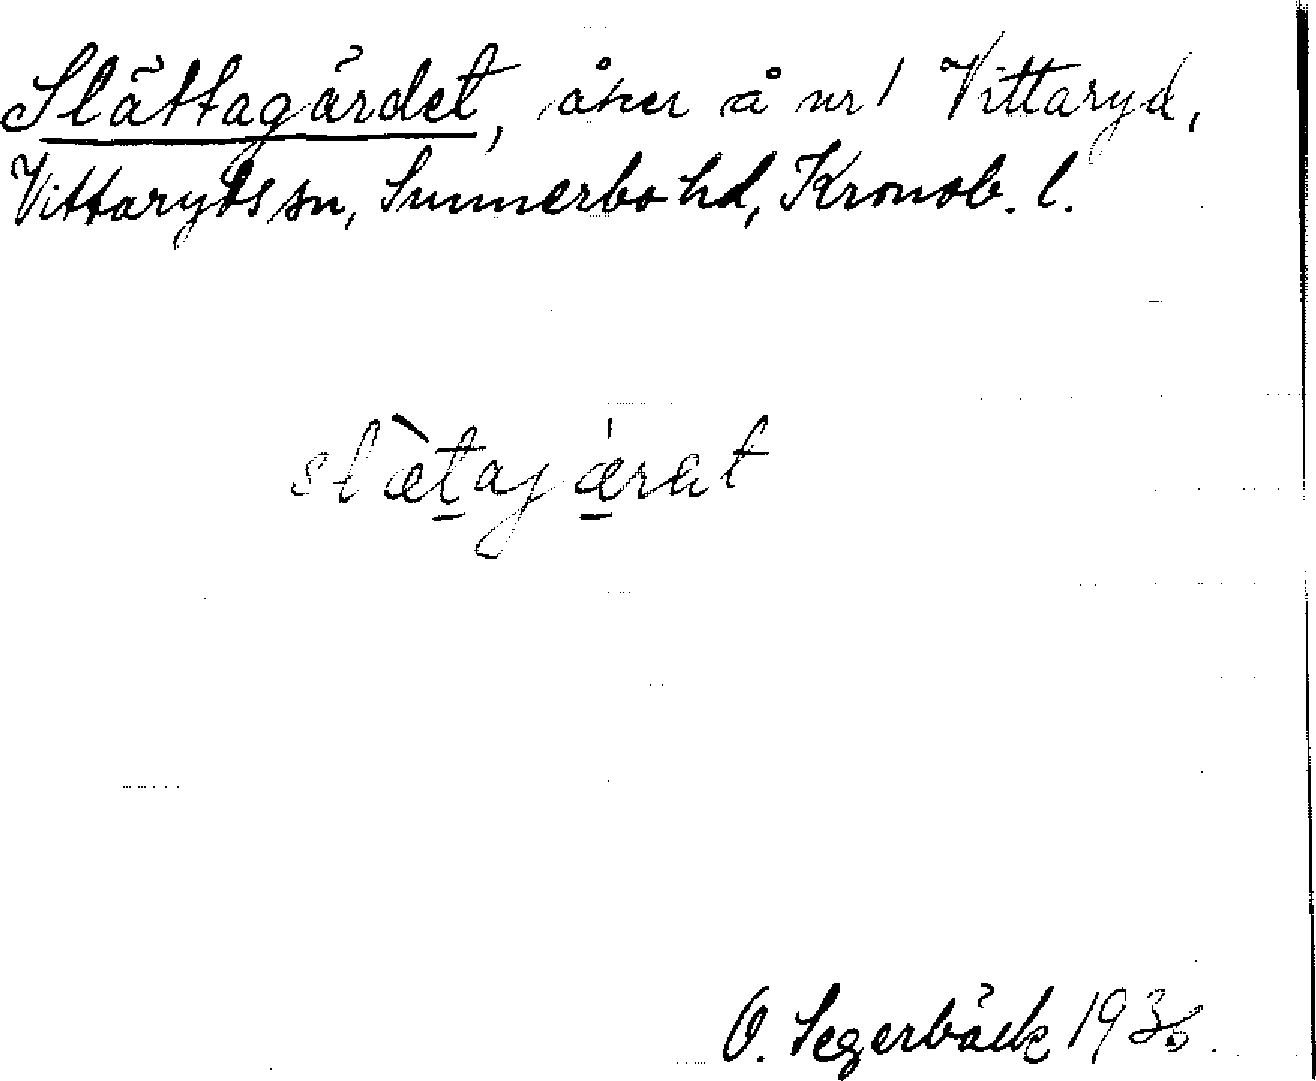 Slättagärdet, åker å nr 1 Vittaryd,
Vittaryds sn, Sunnerbo hd, Kronob. l.
slæ̀t̲aj æ̲̍rat
O. Segerbäck 1936.